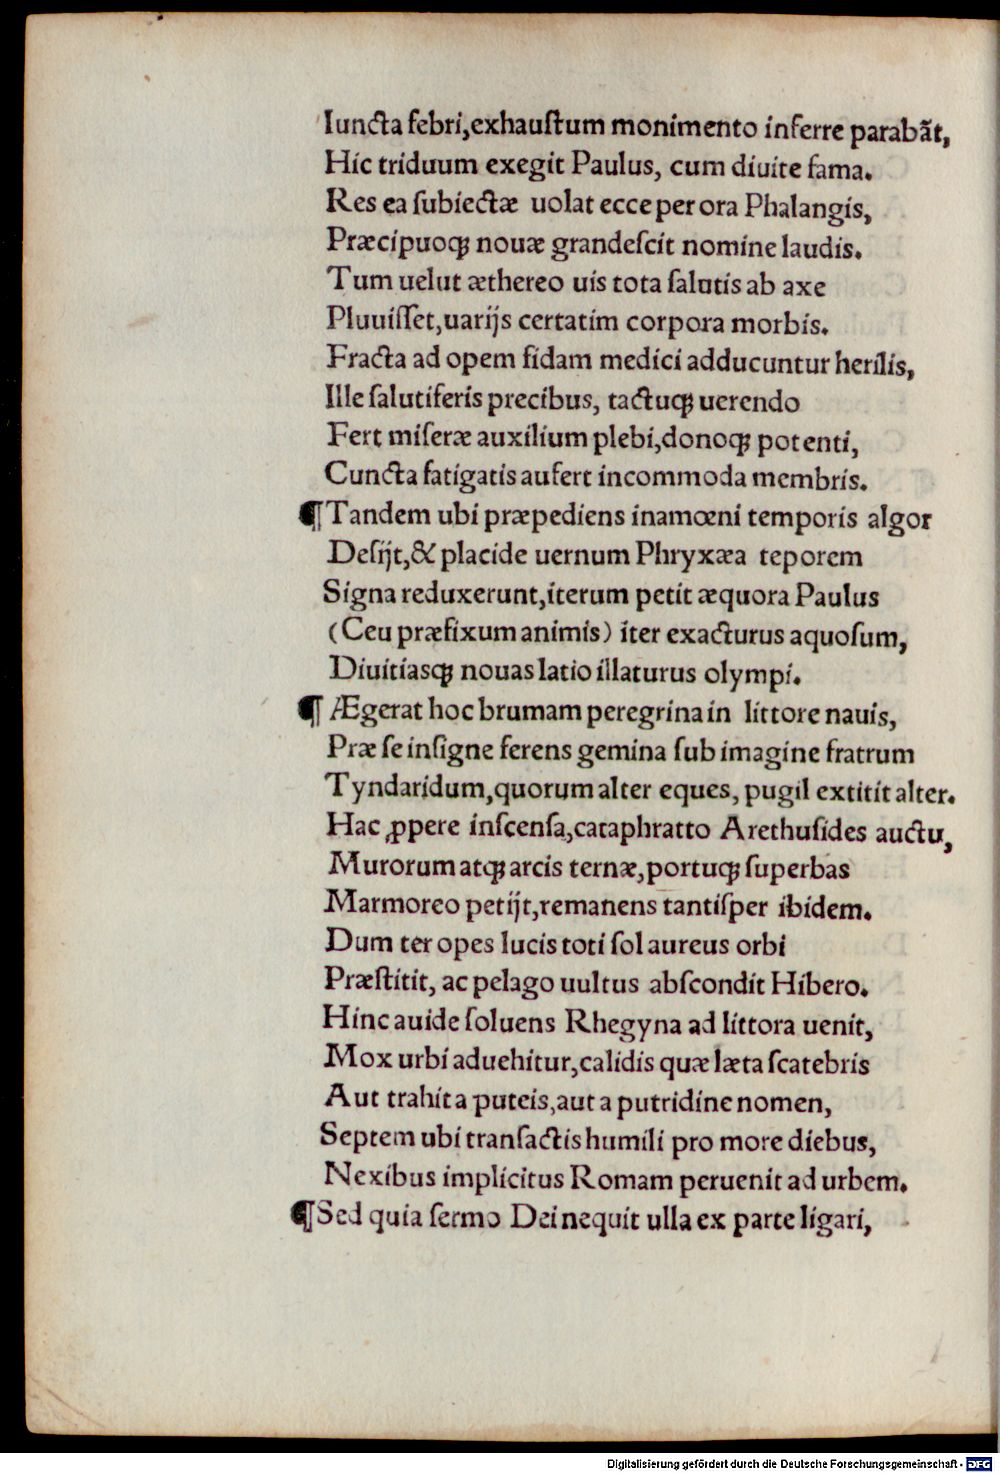 Iuncta febri,exhauſtum monimento inferre parabãt,
Hic triduum exegit Paulus, cum diuite fama.
Res ea ſubiectæ uolat ecce per ora Phalangis,
Præcipuoqꝫ nouæ grandeſcit nomine laudis.
Tum uelut æthereo uis tota ſalutis ab axe
Pluuiſſet,uarijs certatim corpora morbis.
Fracta ad opem fidam medici adducuntur herilis,
Ille ſalutiferis precibus, tactuqꝫ uerendo
Fert miſeræ auxilium plebi,donoqꝫ potenti,
Cuncta fatigatis aufert incommoda membris.
¶ Tandem ubi præpediens inamœni temporis algor
Deſijt,& placide uernum Phryxæa teporem
Signa reduxerunt,iterum petit æquora Paulus
(Ceu præfixum animis) iter exacturus aquoſum,
Diuitiasqꝫ nouas latio illaturus olympi.
¶ Ægerat hoc brumam peregrina in littore nauis,
Præ ſe inſigne ferens gemina ſub imagine fratrum
Tyndaridum,quorum alter eques, pugil extitit alter.
Hac ꝓpere inſcenſa,cataphratto Arethuſides auctu,
Murorum atqꝫ arcis ternæ,portuqꝫ ſuperbas
Marmoreo petijt,remanens tantiſper ibidem.
Dum ter opes lucis toti ſol aureus orbi
Præſtitit, ac pelago uultus abſcondit Hibero.
Hinc auide ſoluens Rhegyna ad littora uenit,
Mox urbi aduehitur,calidis quæ læta ſcatebris
Aut trahit a puteis,aut a putridine nomen,
Septem ubi tranſactis humili pro more diebus,
Nexibus implicitus Romam peruenit ad urbem.
¶ Sed quia ſermo Dei nequit ulla ex parte ligari,
Digitalisierung gefördert durch die Deutsche Forschungsgemeinschaft - DFG